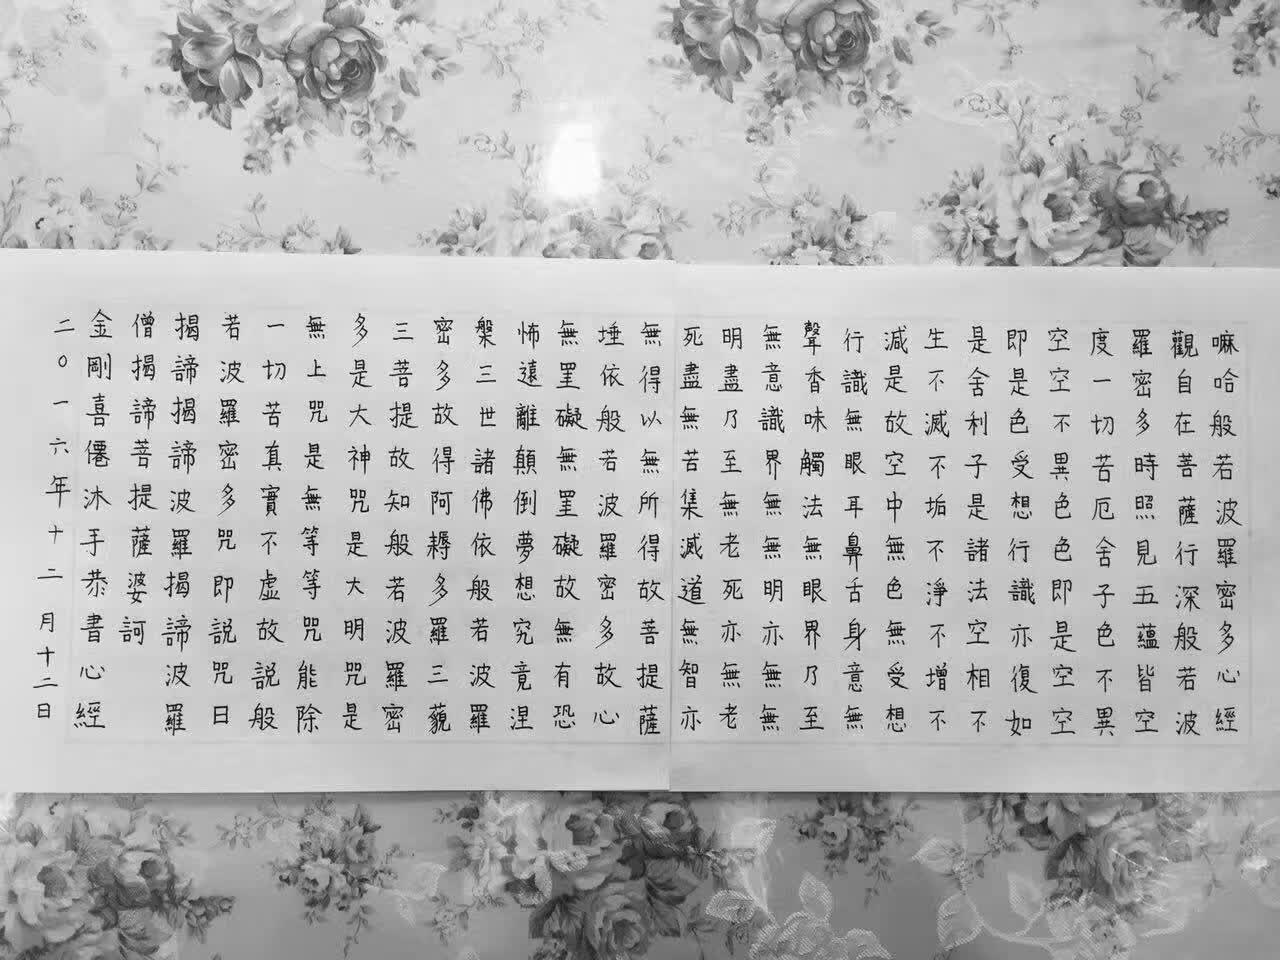 嘛哈般若波羅密多心經
觀自在菩薩行深般若波
羅密多時照見五蘊皆空
度一切苦厄舍子色不異
空空不異色色即是空空
即是色受想行識亦復如
是舍利子是諸法空相不
生不滅不垢不淨不增不
減是故空中無色無受想
行識無眼耳鼻舌身意無
聲香味觸法無眼界乃至
無意識界無無明亦無無
明盡乃至無老死亦無老
死盡無苦集滅道無智亦
無得以無所得故菩提薩
埵依般若波羅密多故心
無罣礙無罣礙故無有恐
怖遠離顛倒夢想究竟涅
槃三世諸佛依般若波羅
密多故得阿耨多羅三藐
三菩提故知般若波羅密
多是大神咒是大明咒是
無上咒是無等等咒能除
一切苦真實不虛故説般
若波羅密多咒即説咒曰
揭諦揭諦波羅揭諦波羅
僧揭諦菩提薩婆訶
金剛喜僊沐手恭書心經
二〇一六年十二月十二日